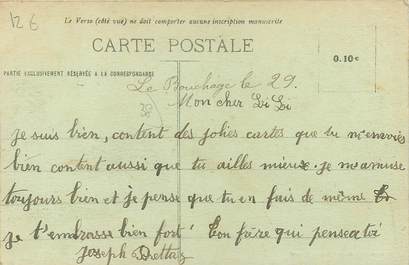 126
Le Verso (côté vue) ne doit comporter aucune inscription manuscrite
CARTE POSTALE
0.10 c
PARTIE EXCLUSIVEMENT RÉSERVÉE A LA CORRESPONDANCE
Le Bouchage le 29.
38
Mon cher Li Li
je suis bien, content des jolies cartes que tu m'envoies
bien content aussi que tu ailles mieux. je m'amuse
toujours bien et je pense que tu en fais de même
je t'embrasse bien fort! Ton frère qui pense a toi
Joseph